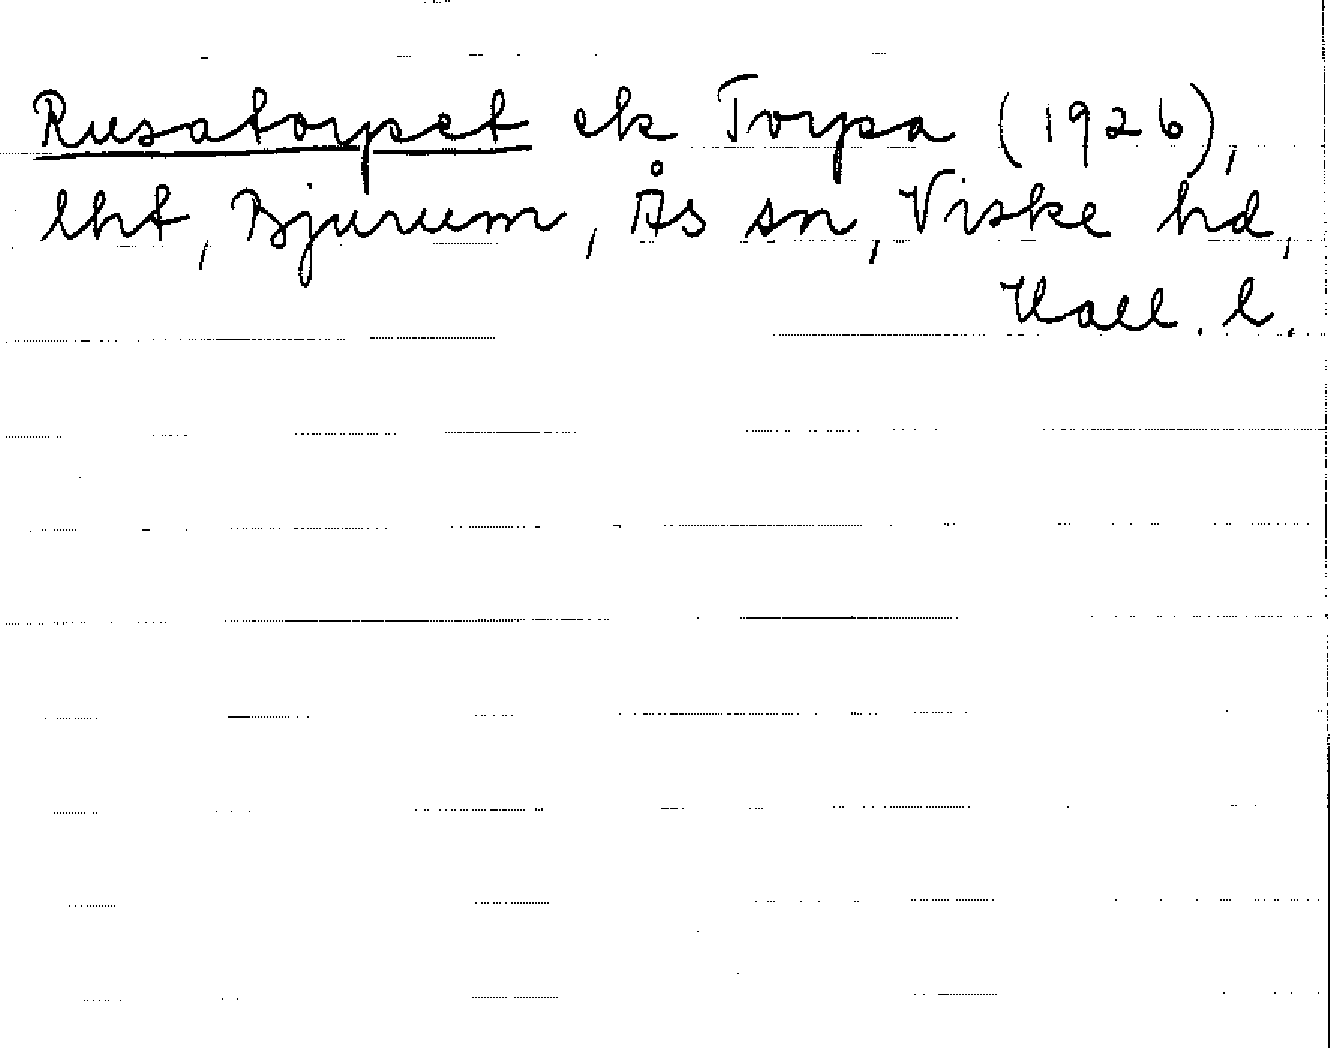 Rusatorpet ek Torpa (1926),
lht, Bjurum, Ås sn, Viske hd,
Hall. l.